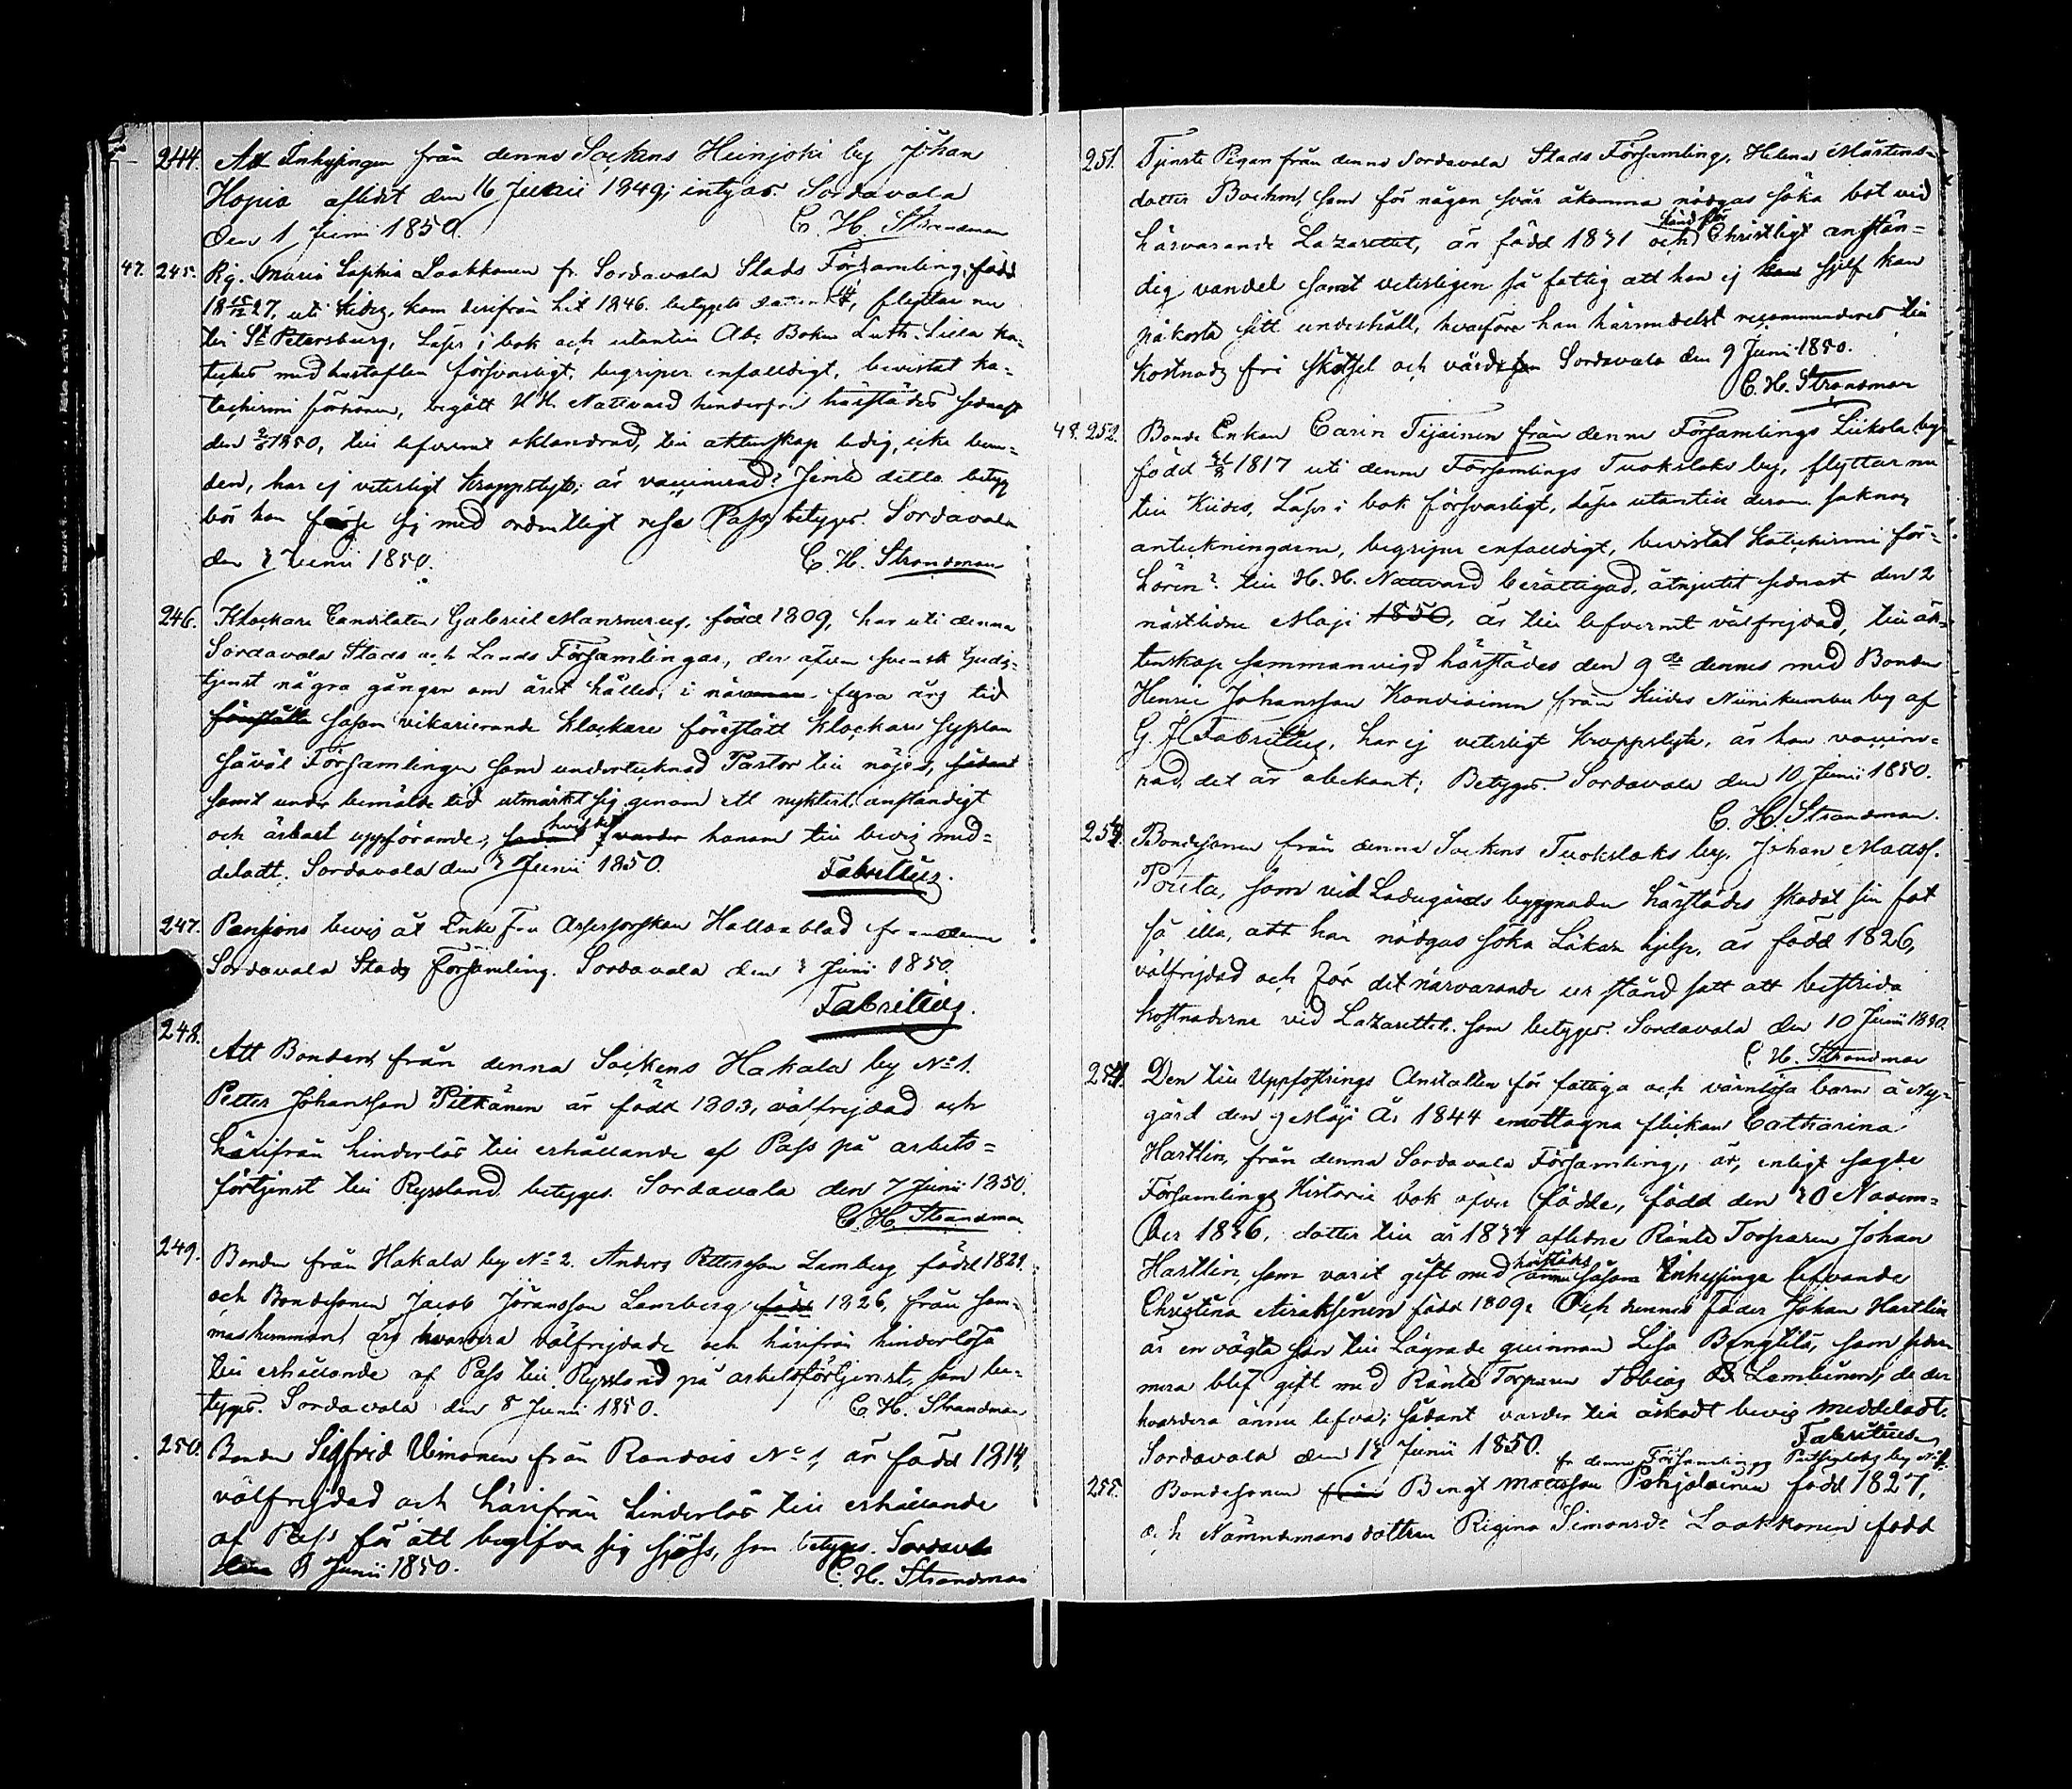 244. Att Inhysingen från denna Sockens Heinjoki by Johan
Hopia aflidit den 16 Junii 1849; intygas. Sordavala
den 1 Junii 1850. C. H. Strandman
47. 245. Pig. Maria Sophia Laakkonen fr. Sordavala Stads Församling, född
18 15/12 27, uti Kides, kom derifrån hit 1846. betygets flyttar nu
till St Petersburg, Läser i bok och utantill Abc Boken Luth. Lilla ka-
teches med hustaflan försvarligt, begriper enfaldigt, bevistat ka-
techismi förhören, begått H. H. Nattvard hinderfri härstädes sednast
den 1850, till lefvernet oklandrad, till äktenskap ledig, icke bun-
den, har ej veterligt kroppslyte; är vaccinerad? Jemte detta betyg
bör hon förse sig med ordentligt rese Pass betygas. Sordavala
den 3 Junii 1850. C. H. Strandman
246. Klockare Candidaten Gabriel Mansnerus, född 1809, har uti denna
Sordavala Stads och Lands Församlingar, der äfven svensk Guds-
tjenst några gånger om året hålles, i fyra års tid
föreställt såsom vikarierande Klockare förestått Klockare sysslan
såväl Församlingen som undertecknad Pastor till nöjes, sådant
samt under bemälde tid utmärkt sig genom ett nyktert, anständigt
och ärbart uppförande; sådant hvilket varder honom till bevis med-
deladt. Sordavala den 3 Junii 1850. Fabritius.
247. Pensions bevis åt Enke Fru Assessorskan Hallonblad från denna
Sordavala Stads Församling. Sordavala den 3 Junii 1850.
Fabritius.
248.
Att Bonden från denna Sockens Hakala by No 1.
Petter Johansson Pitkänen är född 1803, välfrejdad och
härifrån hinderlös till erhållande af Pass på arbets-
förtjenst till Ryssland betygas. Sordavala den 7 Junii 1850.
C. H. Strandman
249. Bonden från Hakala by No 2. Anders Pettersson Lamberg född 1829.
och Bondesonen Jacob Jöransson Lamberg född 1826, från sam-
mashemmant äro hvardera välfrejdade och härifrån hinderlösa
till erhållande af Pass till Ryssland på arbetsförtjenst, som be-
tygas. Sordavala den 8 Junii 1850. C. H. Strandman
250. Bonden Sigfrid Uimonen från Randois No 1, är född 1814,
välfrejdad och härifrån hinderlös till erhållande
af Pass för att begifva sig sjöss, som betygas. Sordavala
den 8 Junii 1850. C. H. Strandman
251. Tjenste Pigan från denna Sordavala Stads Församling, Helena Mårtens-
dotter Boehm, som för någon svår åkomma nödgas söka bot vid
härvarande Lazarettet, är född 1831 och känd för Christligt anstän-
dig vandel samt veterligen så fattig att hon ej kan sjelf kan
påkosta sitt underhåll, hvarföre hon härmedelst recommenderas till
kostnads fri skötsel och vård Sordavala den 9 Juni 1850.
C. H. Strandman
48. 252. Bonde Enkan Carin Tijainen från denna Församlings Liikola by
född 31/8 1817 uti denna Församlings Tuokslaks by, flyttar nu
till Kides, Läser i bok försvarligt, läsa utantill derom saknas
anteckningarne, begriper enfaldigt, bevistat Katechismi för-
hören? till H. H. Nattvard berättigad, åtnjutit sednast den 2
nästledne Maji 1850, är till lefvernet välfrejdad, till äk-
tenskap sammanvigd härstädes den 9de dennes med Bonden
Henric Johansson Kondiainen från Kides Niinikumbu by af
G. J. Fabritius, har ej veterligt kroppslyte, är hon vaccine-
rad, det är obekant; Betygas. Sordavala den 10 Junii 1850.
C. H. Strandman.
253. Bondesonen från denna Sockens Tuokslaks by, Johan Madss.
Pouta, som vid Ladugårds byggnader härstädes skadat sin fot
så illa, att han nödgas söka Läkare hjelp, är född 1826,
välfrejdad och för det närvarande ur stånd satt att bestrida
kostnaderne vid Lazarettet. som betygas. Sordavala den 10 Junii 1850.
C. H. Strandman
254. Den till Uppfostrings Anstalten för fattiga och värnlösa barn å Ny-
gård den 9 Maji År 1844 emottagna flickan Catharina
Hartlin, från denna Sordavala Församling, är, enligt sagde
Församlings Historie bok öfver födde, född den 20 Novem-
ber 1836, dotter till år 1837 aflidne Ränte Torparen Johan
Hartlin, som varit gift med härstädes ännu såsom Inhysinge lefvande
Christina Airaksinen född 1809. Och dennes Fader Johan Hartlin
är en oägta son till Lägrade qvinnan Lisa Bengtils, som seder-
mera blef gift med Ränte Torparen Tobias Lambinen, de der
hvardera ännu lefva; sådant varder till äskadt bevis meddeladt.
Sordavala den 13 Junii 1850. Fabritius
255. Bondesonen från fr. denna Församlings by No Bengt Mattsson Pohjolainen född 1827,
och Nämndemans dottren Regina Simonsdr Laakkonen född